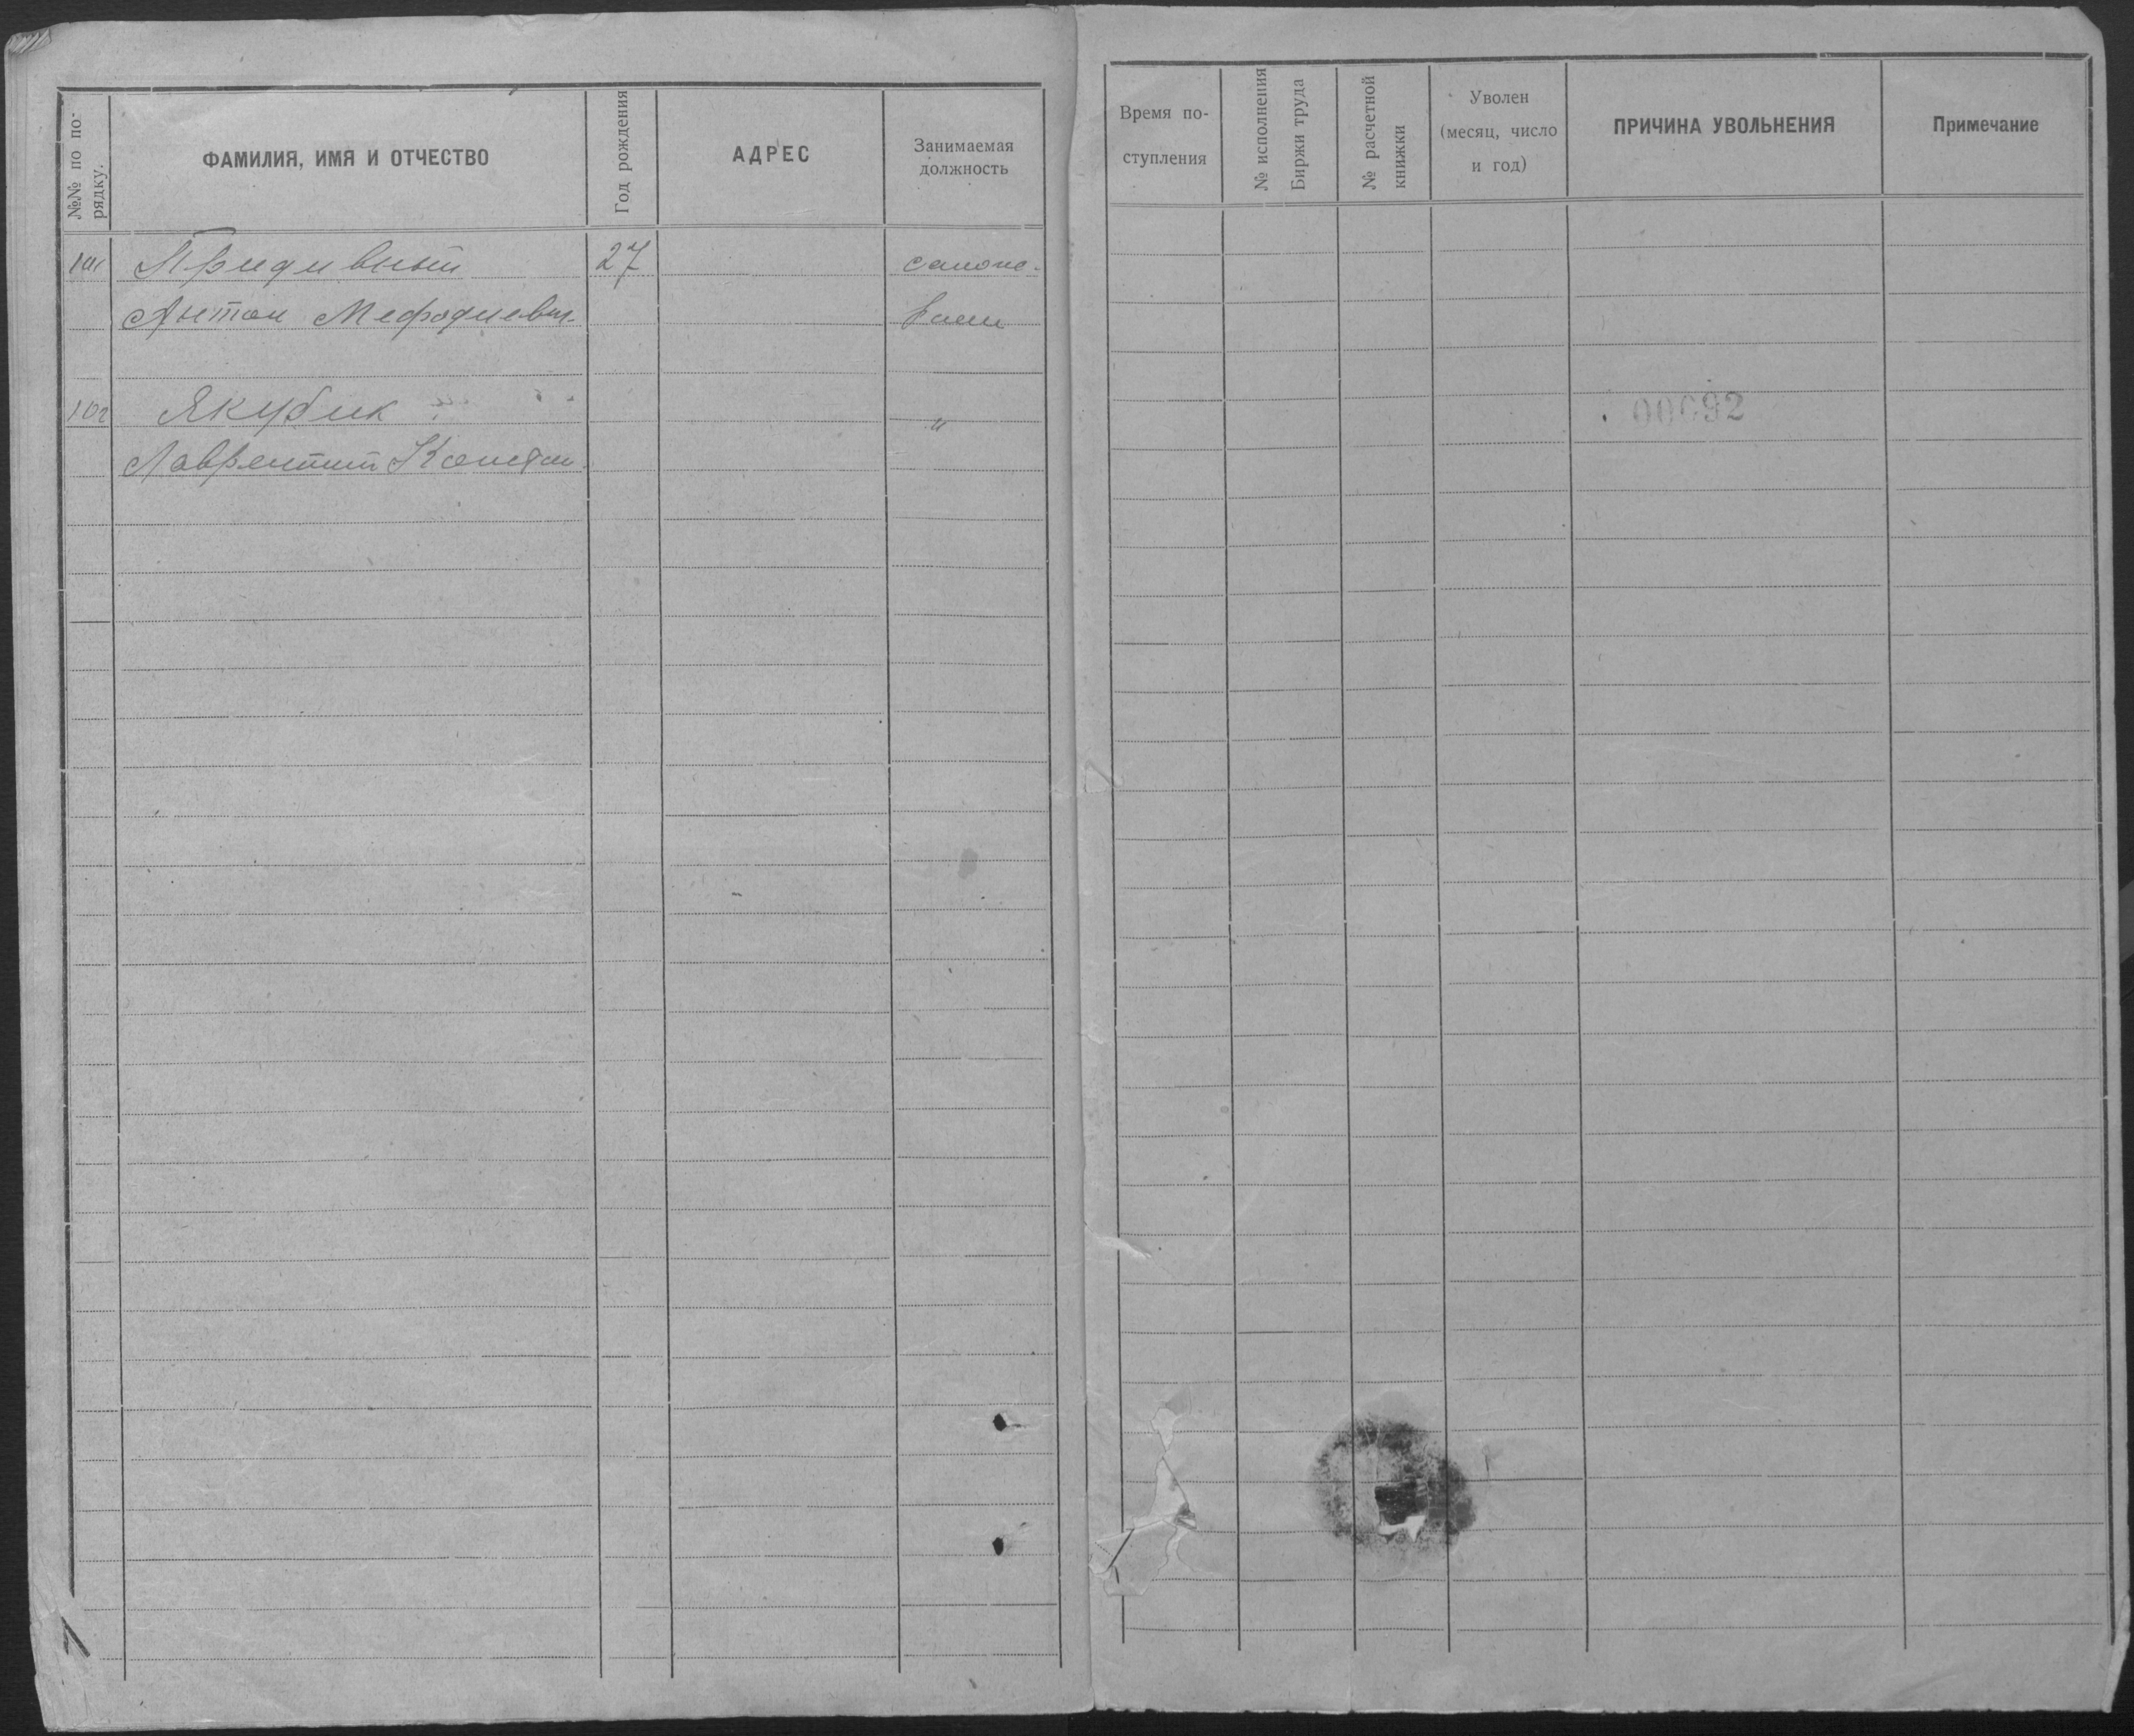 №№ по по-
рядку.
ФАМИЛИЯ, ИМЯ И ОТЧЕСТВО
Год рождения
АДРЕС
Занимаемая
должность
Время по-
ступления
№ исполнения
Биржи труда
№ расчетной
книжки
Уволен
(месяц, число
и год)
ПРИЧИНА УВОЛЬНЕНИЯ
Примечание
101 Придивный 27
Антон Мефодиевич
102 Якубик "
Лаврентий Констан.
00092